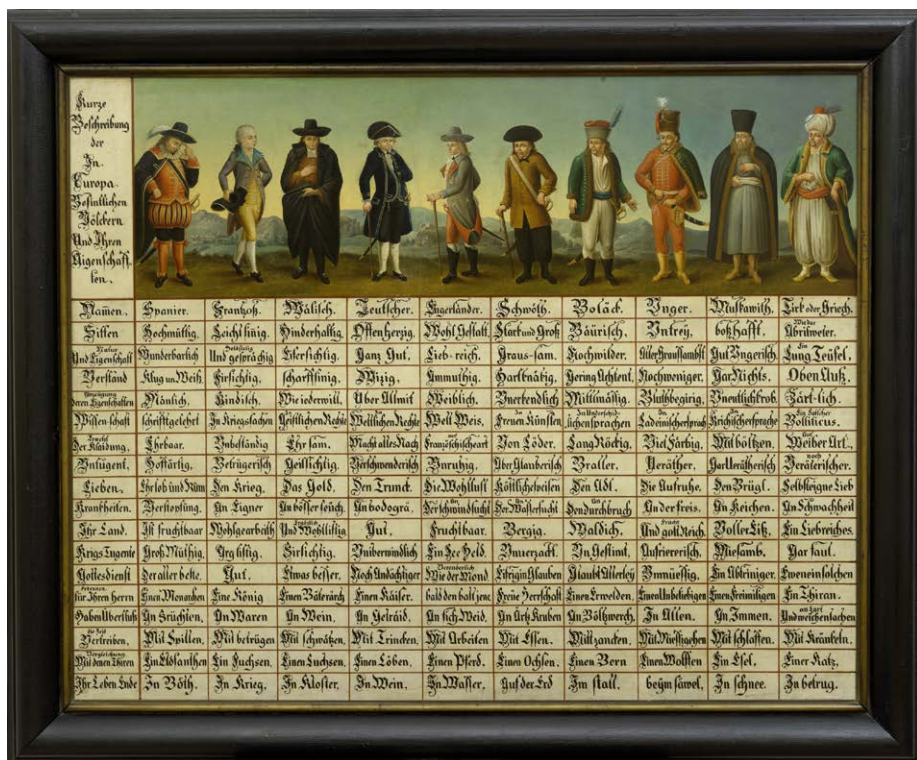 Kurze
Beschreibung
der
In
Europa
Befintlichen
Völckern
Und Ihren
Aigenschaff
ten.
Namen. Spanier. Frantzoß. Wälisch. Teutscher. Engerländer. Schwöth. Boläck. Unger. Muskawith. Tirk oder Griech.
Sitten Hochmüttig. Leichtsinig. Hinderhaltig. Offenherzig. Wohl Gestalt. Starck und Groß Bäurisch. Untrey. boßhafft. Wie das Abrilweter.
Natur Und Eigenschaft Wunderbarlich Holdseelig Und gesprächig Eifersichtig. Ganz Gut. Lieb-reich. Graus-sam. Nochwilder. Aller Graussambst Gut Ungerisch. Ein Lung Teüfel.
Verstand Klug un Weiß. Firsichtig. scharffsinig. Wizig. Ammuthig. Hartknätig. Gering Achtent. Nochweniger. Gar Nichts. Oben Auß.
Anzeigung deren Eigenschaften Mänlich. Kindisch. Wie iederwill. Über Allmit Weiblich. Unerkendlich Mittlmäsig. Bluthbegirig. Unentlichkrob. Zärt-lich.
Wissenschaft schrifftgelehrt In Kriegssachen Geistlichen Rechte Weltlichen Rechte Welt Weis. In Freuen Künsten In Underschidlichensprachen In Ladeinischersprach In Krichischersprache Ein Falscher Bolliticus.
Der Klaidung. Ehrbaar. Unbeständig Ehrsam. Macht alles Nach Französischeart Von Löder. Lang Röckig. Viel Färbig. Mit böltzen. Auf Weiber Art.
Untugent. Hoffärtig. Betrügerisch Geilsichtig. Verschwenderisch Unruhig. Über Glauberisch Braller. Veräther. Gar Verätherisch noch Veräterischer.
Lieben. Ehrlob und Rüm Den Krieg. Das Gold. Den Trunck. Die Wohllust Köstlichespeisen Den Adl. Die Aufruhe. Den Brügl. Selbsteigne Lieb
Krankheiten. Verstopfung. An Eigner An bösser seüch. An bodogrä. An Der schwindsucht An Der Wassersucht An Den durchbruch An der freis. An Keichen. An Schwachheit
Ihr Land. Ist fruchtbaar Wohlgearbeith Und Wohllistig Gut. Fruchtbaar. Bergig. Waldich. Und goltReich. Voller Eiß. Ein Liebreiches.
Krigs Tugente Groß Müthig. Arg listig. Firsichtig. Uniberwindlich Ein See Held. Unverzackt. Un Gestimt. Aufriererisch. Miesamb. Gar faul.
Gottesdienst Der aller beste. Gut. Etwas besser. Noch Andächtiger Wie der Mond Eifrig in Glauben Glaubt Allerley Unmüessig. Ein Abtriniger. Eweneinsolchen
für Ihren herrn Einen Monarchen Eine König Einen Bäterärch Einen Käiser. bald den balt jene Freie Herrschaft Einen Erwelden. Einen Unbeliebigen Einen Freimiligen Ein Thiran.
Haben Überfluß In Früchten. An Waren An Wein. An Geträid. An fich Weid. An Artz Kruben An Böltzwerch. In Allen. An Immen. Und weichen sachen
Die Zeit Vertreiben. Mit Spillen. Mit betrügen Mit schwätzen. Mit Trincken. Mit Arbeiten Mit Essen. Mitt zancken. Mit Miessigehen Mit schlaffen. Mit Kränkeln.
Vergleichung Mit denen Thiren Ein Elofanthen Ein Fuchsen. Einen Luchsen. Einen Löben. Einen Pferd. Einen Ochsen. Einen Bern Einen Wolffen Ein Esel. Einer Katz.
Ihr Leben Ende In Böth. In Krieg. In Kloster. In Wein. In Wasser. Auf der Erd Im stall. beym säwel. In schnee. In betrug.